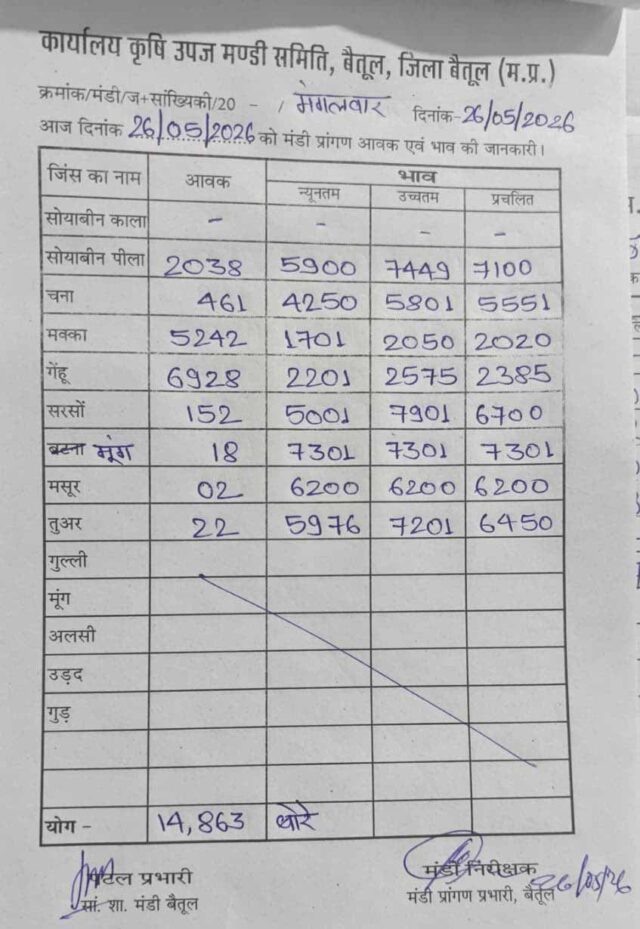 कार्यालय कृषि उपज मण्डी समिति, बैतूल, जिला बैतूल (म.प्र.)
क्रमांक/मंडी/ज+सांख्यिकी/20 - / मंगलवार दिनांक-26/05/2026
आज दिनांक 26/05/2026 को मंडी प्रांगण आवक एवं भाव की जानकारी।
जिंस का नाम आवक भाव
न्यूनतम उच्चतम प्रचलित
सोयाबीन काला - - - -
सोयाबीन पीला 2038 5900 7449 7100
चना 461 4250 5801 5551
मक्का 5242 1701 2050 2020
गेंहू 6928 2201 2575 2385
सरसों 152 5001 7901 6700
बटना मूंग 18 7301 7301 7301
मसूर 02 6200 6200 6200
तुअर 22 5976 7201 6450
गुल्ली
मूंग
अलसी
उड़द
गुड़
योग - 14,863 बोरे
पटल प्रभारी मंडी निरीक्षक
सां. शा. मंडी बैतूल मंडी प्रांगण प्रभारी, बैतूल 26/05/26